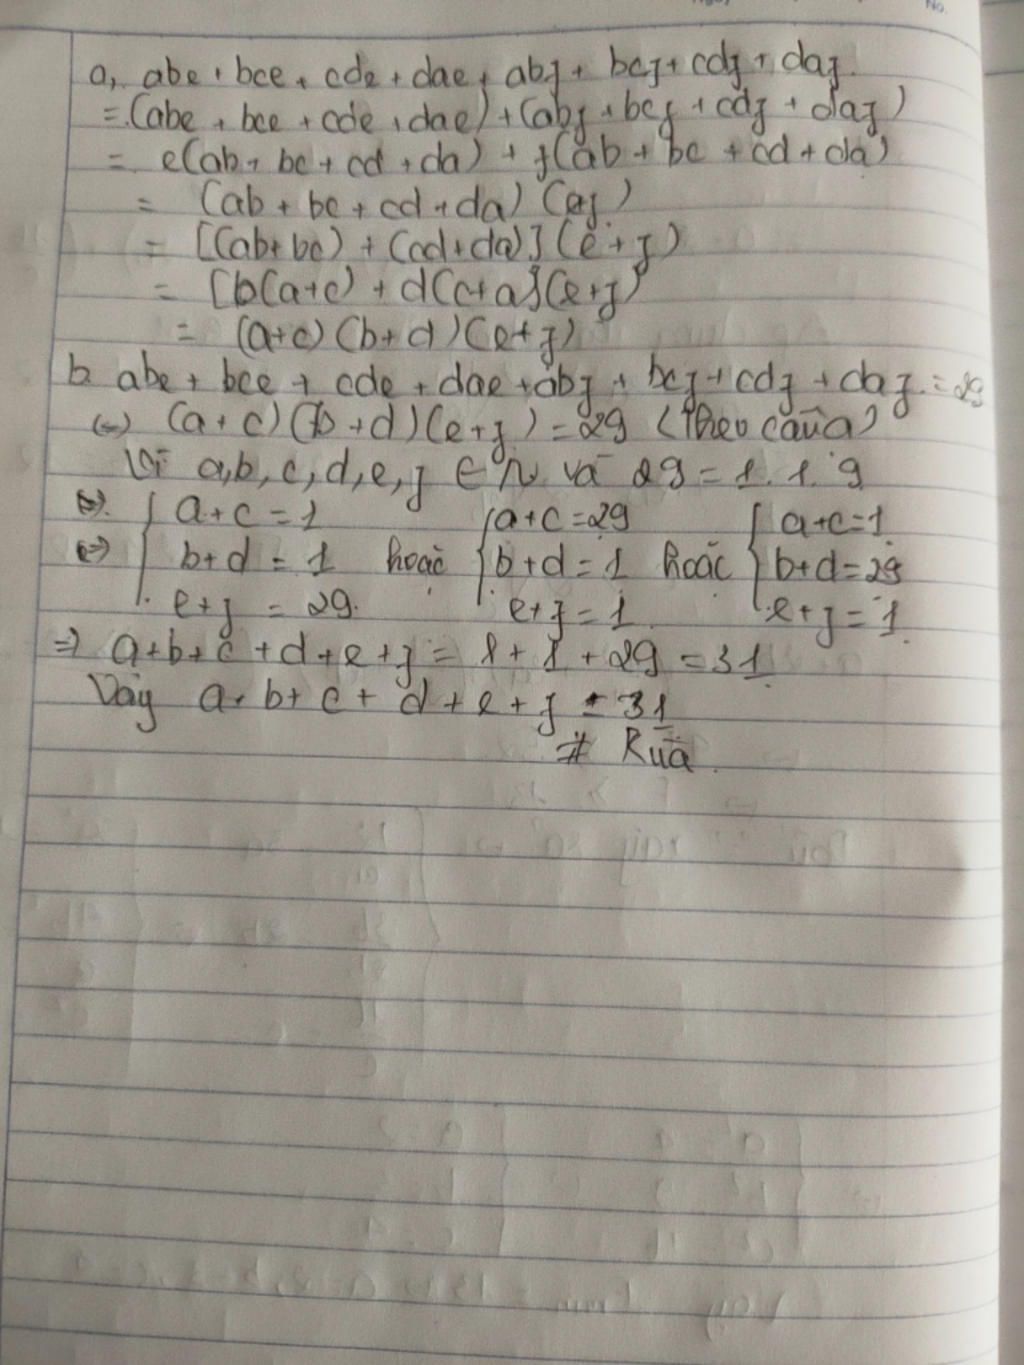 No.
a, abe + bce + cde + dae + abf + bcf + cdf + daf.
= (abe + bce + cde + dae) + (abf + bcf + cdf + daf)
= e(ab + bc + cd + da) + f(ab + bc + cd + da)
= (ab + bc + cd + da) (ef)
= [(ab + bc) + (cd + da)] (e + f)
= [b(a+c) + d(c+a](e+f)
= (a+c) (b+d) (e+f)
b abe + bce + cde + dae + abf + bcf + cdf + daf = 29
(=) (a + c) (b + d) (e + f) = 29 (Theo câu a)
Vì a, b, c, d, e, f ∈ N và 29 = 1. 1. 9
=> { a + c = 1 { a + c = 29 { a + c = 1
(=) b + d = 1 hoặc b + d = 1 hoặc b + d = 29
e + f = 29. e + f = 1 e + f = 1.
=> a + b + c + d + e + f = 1 + 1 + 29 = 31
Vậy a + b + c + d + e + f = 31
# Rùa